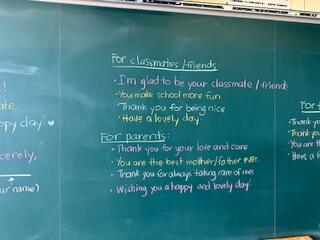 !
ate.
ppy day!
cerely,
ur name)
For classmates/friends
• I'm glad to be your classmate/friend!
• You make school more fun.
Thank you for being nice
• Have a lovely day!
For parents:
• Thank you for your love and care.
• You are the best mother/father ever.
• Thank you for always taking care of me.
• Wishing you a happy and lovely day!
For t
• Thank yo
Thank you
• You are th
• Have a